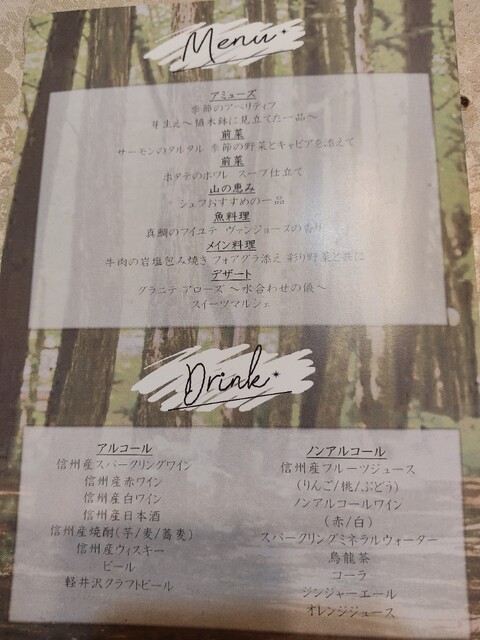 Menu
アミューズ
季節のアペリティフ
芽生え〜植木鉢に見立てた一品〜
前菜
サーモンのタルタル 季節の野菜とキャビアを添えて
前菜
ホタテのポワレ スープ仕立て
山の恵み
シェフおすすめの一品
魚料理
真鯛のフイユテ ヴァンジョーヌの香り
メイン料理
牛肉の岩塩包み焼き フォアグラ添え 彩り野菜と共に
デザート
グラニテ アローズ 〜水合わせの儀〜
スイーツマルシェ
Drink
アルコール
信州産スパークリングワイン
信州産赤ワイン
信州産白ワイン
信州産日本酒
信州産焼酎(芋/麦/蕎麦)
信州産ウィスキー
ビール
軽井沢クラフトビール
ノンアルコール
信州産フルーツジュース
(りんご/桃/ぶどう)
ノンアルコールワイン
(赤/白)
スパークリングミネラルウォーター
烏龍茶
コーラ
ジンジャーエール
オレンジジュース